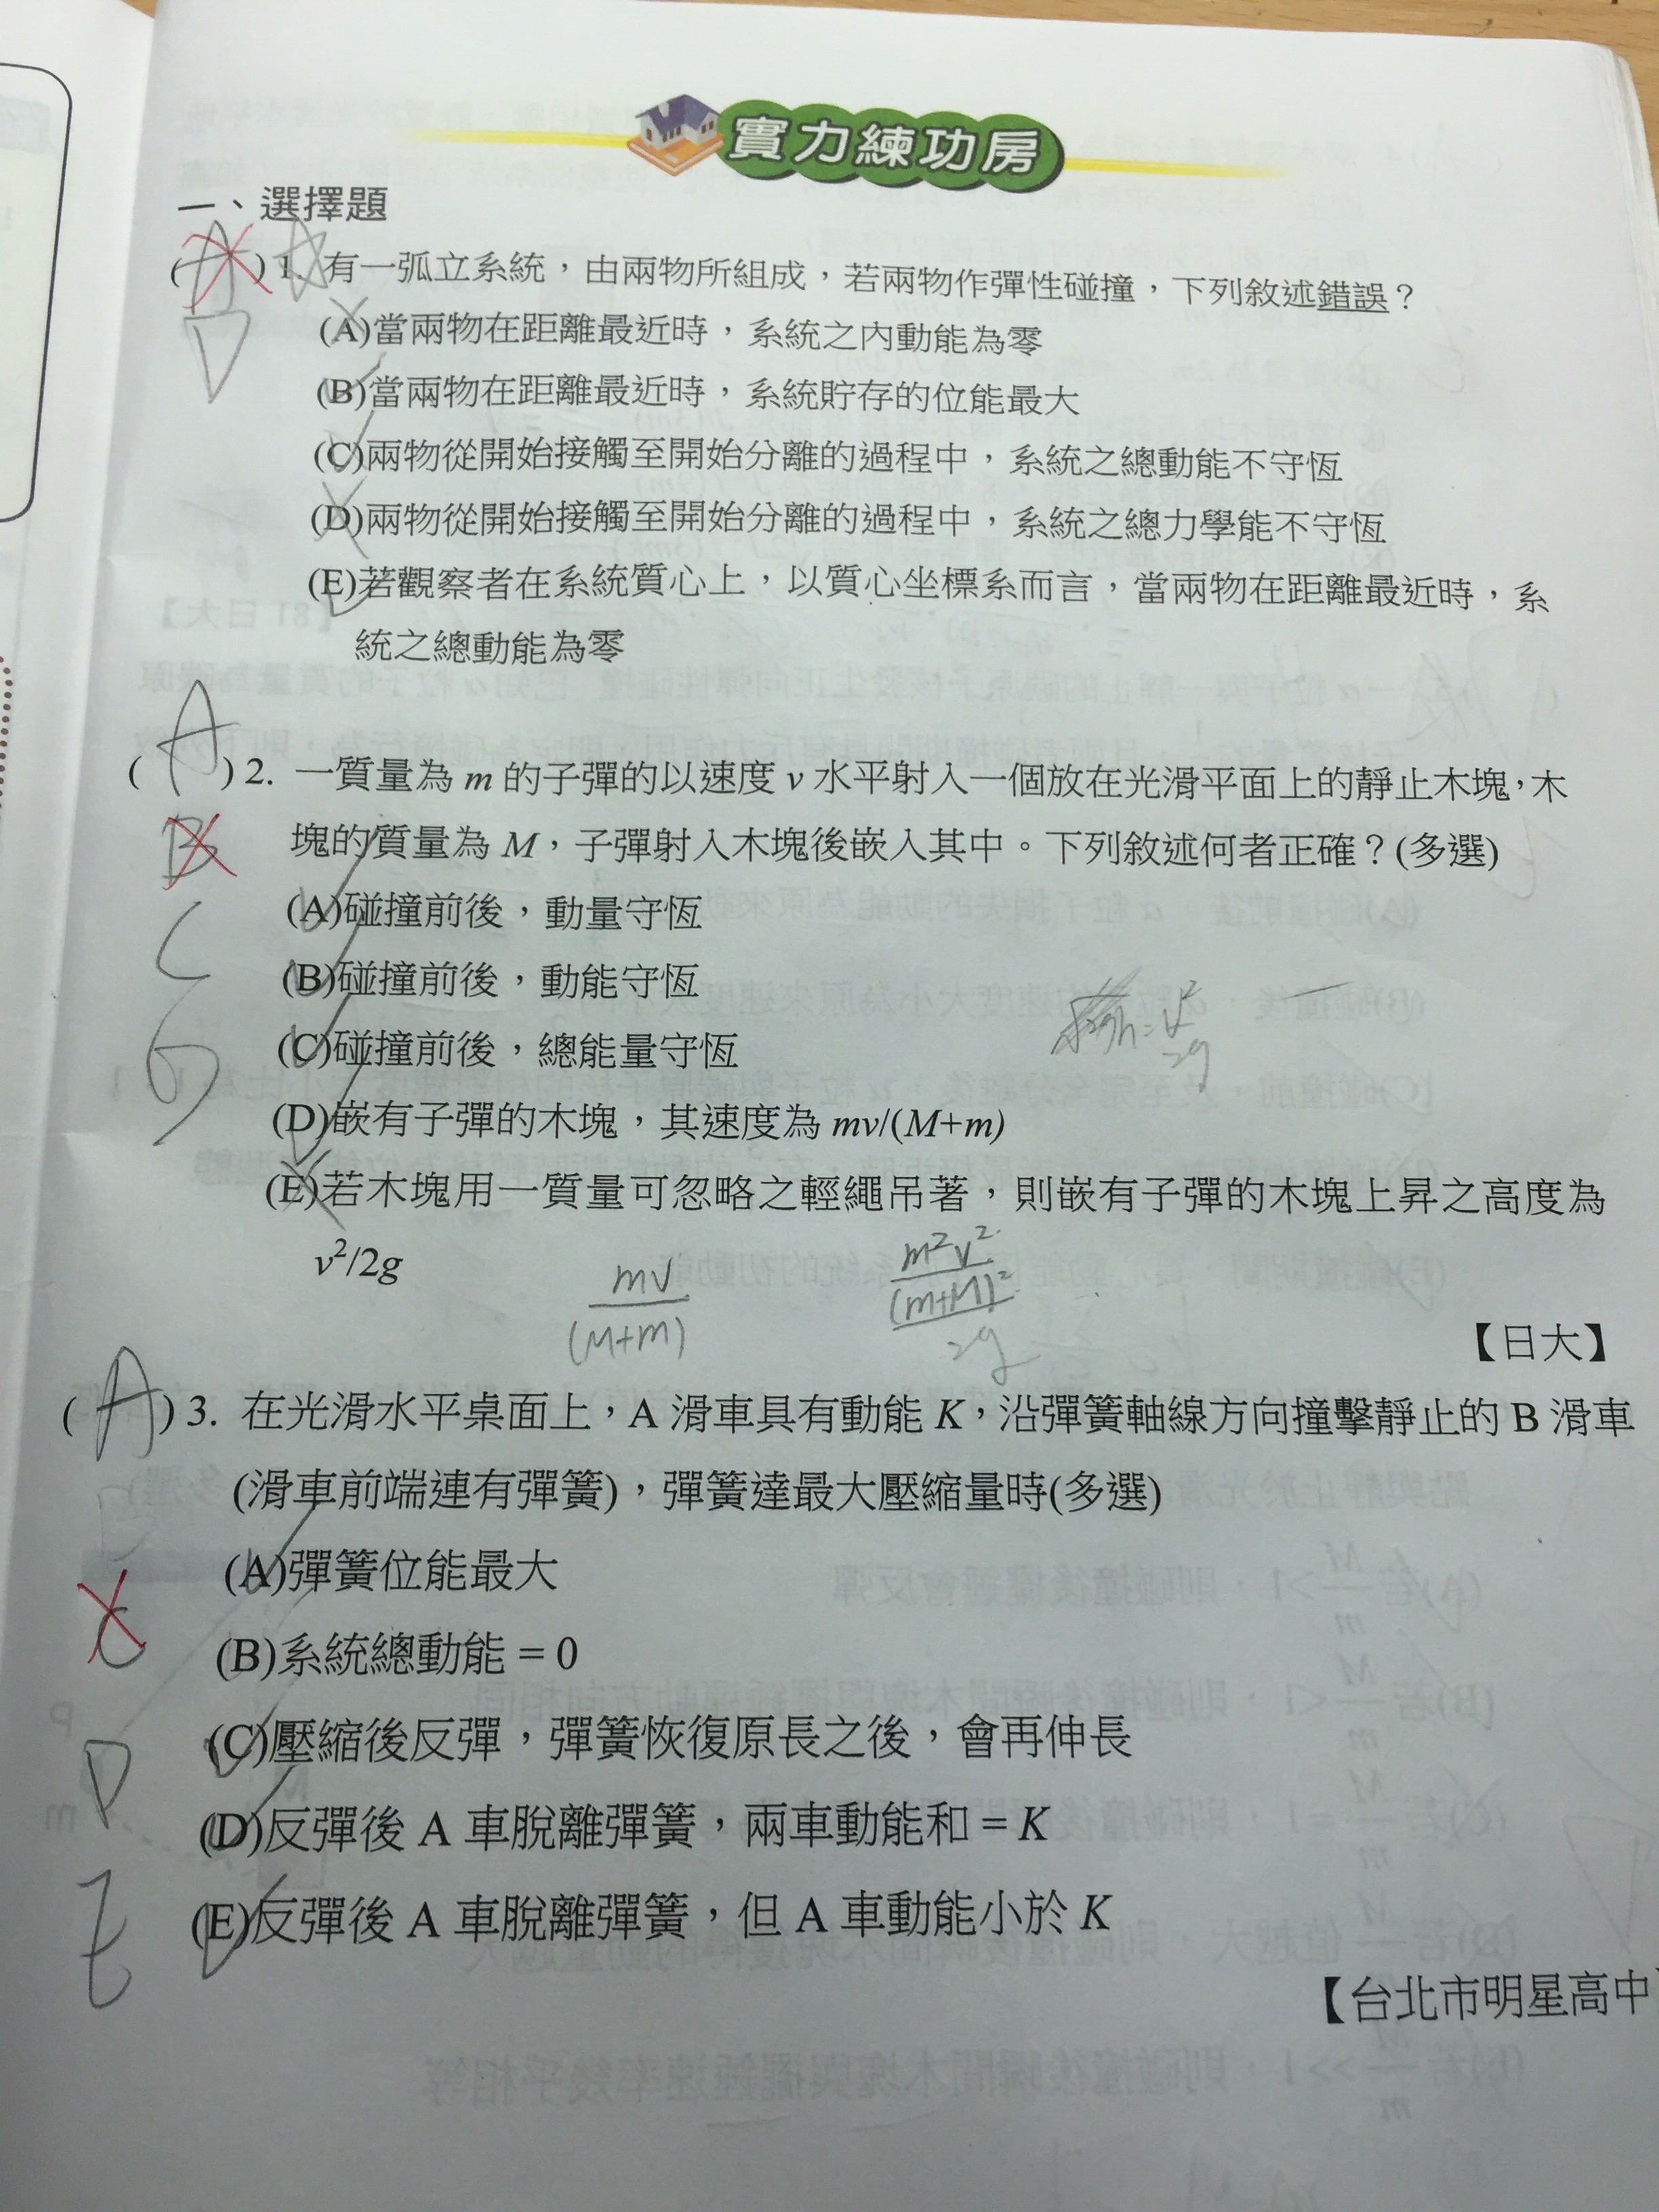 實力練功房
一、選擇題
(A) A 1. 有一弧立系統，由兩物所組成，若兩物作彈性碰撞，下列敘述錯誤？
D
(A)當兩物在距離最近時，系統之內動能為零
(B)當兩物在距離最近時，系統貯存的位能最大
(C)兩物從開始接觸至開始分離的過程中，系統之總動能不守恆
(D)兩物從開始接觸至開始分離的過程中，系統之總力學能不守恆
(E)若觀察者在系統質心上，以質心坐標系而言，當兩物在距離最近時，系
統之總動能為零
(A) 2. 一質量為 m 的子彈的以速度 v 水平射入一個放在光滑平面上的靜止木塊，木
B
塊的質量為 M，子彈射入木塊後嵌入其中。下列敘述何者正確？(多選)
(A)碰撞前後，動量守恆
C
(B)碰撞前後，動能守恆
(C)碰撞前後，總能量守恆
h = v²/2g
D
(D)嵌有子彈的木塊，其速度為 mv/(M+m)
(E)若木塊用一質量可忽略之輕繩吊著，則嵌有子彈的木塊上昇之高度為
v²/2g
mv/(M+m)
m²v²/(m+M)²/2g
【日大】
(A) 3. 在光滑水平桌面上，A 滑車具有動能 K，沿彈簧軸線方向撞擊靜止的 B 滑車
(滑車前端連有彈簧)，彈簧達最大壓縮量時(多選)
(A)彈簧位能最大
C
(B)系統總動能 = 0
(C)壓縮後反彈，彈簧恢復原長之後，會再伸長
D
(D)反彈後 A 車脫離彈簧，兩車動能和 = K
E
(E)反彈後 A 車脫離彈簧，但 A 車動能小於 K
【台北市明星高中】